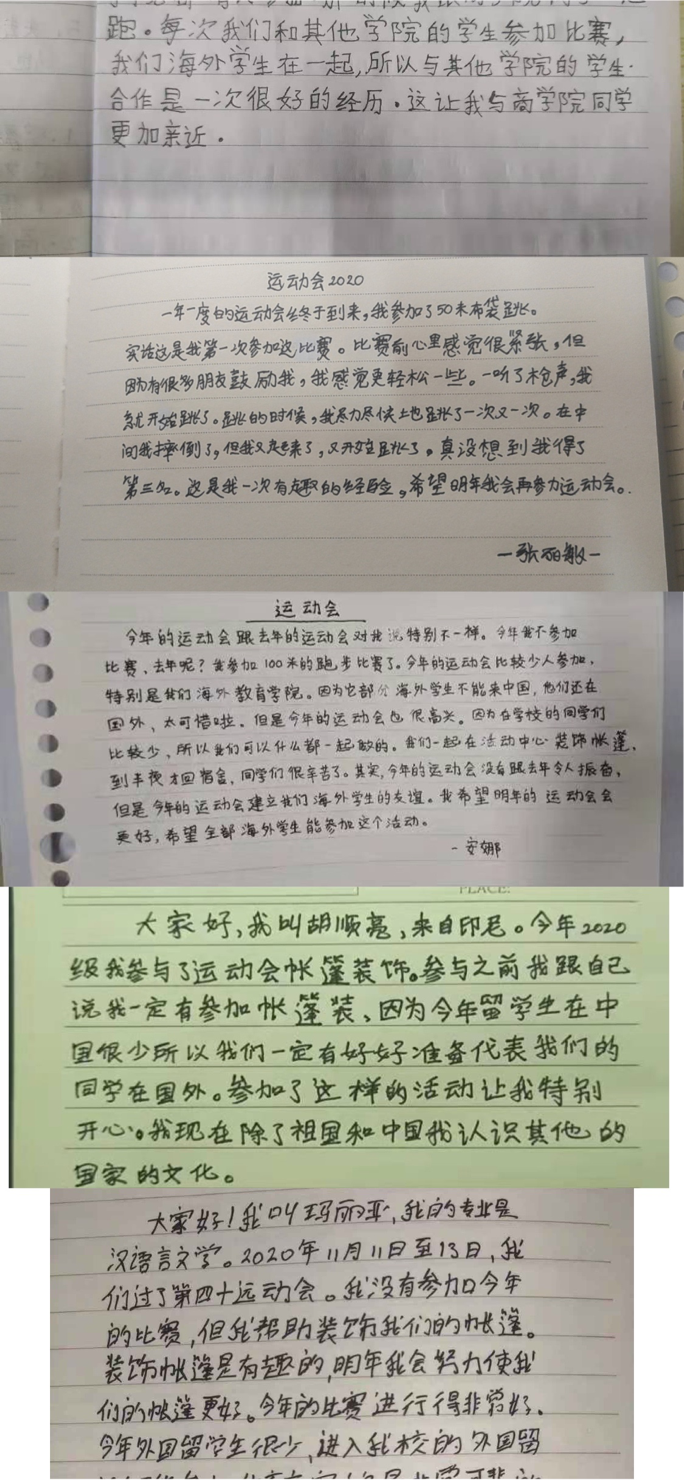 跑。每次我们和其他学院的学生参加比赛,
我们海外学生在一起,所以与其他学院的学生
合作是一次很好的经历。这让我与商学院同学
更加亲近。
运动会2020
一年一度的运动会终于到来,我参加了50米布袋跳。
实话这是我第一次参加这比赛。比赛前心里感觉很紧张,但
因为有很多朋友鼓励我,我感觉更轻松一些。一听了枪声,我
就开始跳了。跳的时候,我尽力尽快地跳了一次又一次。在中
间我摔倒了,但我又起来了,又开始跳了。真没想到我得了
第三名。这是我一次有趣的经验,希望明年我会再参加运动会。
—张丽敏—
运动会
今年的运动会跟去年的运动会对我说特别不一样。今年我不参加
比赛、去年呢?我参加100米的跑步比赛了。今年的运动会比较少人参加,
特别是我们海外教育学院。因为它部分海外学生不能来中国,他们还在
国外、太可惜啦。但是今年的运动会也很高兴。因为在学校的同学们
比较少,所以我们可以什么都一起做的。我们一起在活动中心装饰帐篷,
到半夜才回宿舍,同学们很辛苦了。其实,今年的运动会没有跟去年令人振奋,
但是今年的运动会建立我们海外学生的友谊。我希望明年的运动会会
更好,希望全部海外学生能参加这个活动。
- 安娜
PLACE:
大家好,我叫胡顺亮,来自印尼。今年2020
级我参与了运动会帐篷装饰。参与之前我跟自己
说我一定有参加帐篷装、因为今年留学生在中
国很少所以我们一定有好好准备代表我们的
同学在国外。参加了这样的活动让我特别
开心。我现在除了祖国和中国我认识其他的
国家的文化。
大家好!我叫玛丽亚,我的专业是
汉语言文学。2020年11月11日至13日,我
们过了第四十远动会。我没有参加今年
的比赛,但我帮助装饰我们的帐篷。
装饰帐篷是有趣的,明年我会努力使我
们的帐篷更好。今年的比赛进行得非常好、
今年外国留学生很少,进入我校的外国留